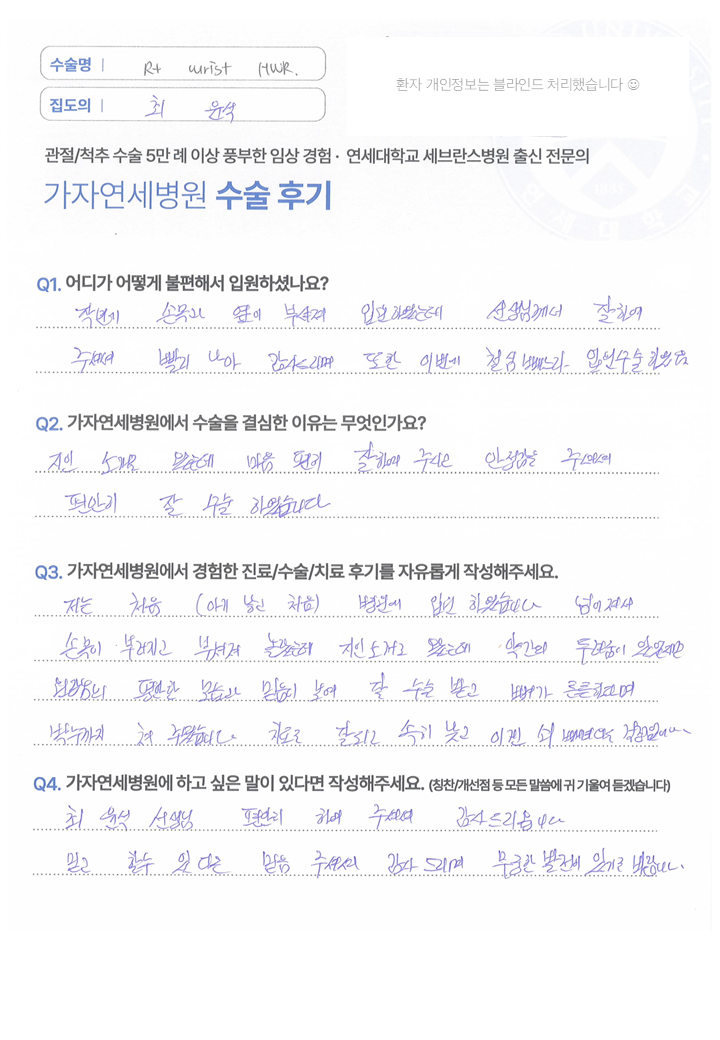 수술명 | Rt wrist HWR.
환자 개인정보는 블라인드 처리했습니다 ☺
집도의 | 최 윤석
관절/척추 수술 5만 례 이상 풍부한 임상 경험 · 연세대학교 세브란스병원 출신 전문의
가자연세병원 수술 후기
Q1. 어디가 어떻게 불편해서 입원하셨나요?
손목과 부셔져 입원 하였는데 선생님께서 잘하여
주셔서 빨리 나아 감사드리며 또한 이번에 철심 빼느라 입원수술 하였음
Q2. 가자연세병원에서 수술을 결심한 이유는 무엇인가요?
지인 소개로 왔는데 마음 편히 잘하여 주시고 안정감을 주셔서
편안히 잘 수술 하였습니다
Q3. 가자연세병원에서 경험한 진료/수술/치료 후기를 자유롭게 작성해주세요.
저는 처음 (아기 낳고 처음) 병원에 입원 하였습니다 넘어져서
손목이 부러지고 부셔져 놀랐는데 지인소개로 왔는데 약간의 두려움이 있었지만
편안한 모습과 믿음이 보여 잘 수술 받고 뼈가 튼튼하며
치료로 잘되고 속히 낫고 이젠
Q4. 가자연세병원에 하고 싶은 말이 있다면 작성해주세요. (칭찬/개선점 등 모든 말씀에 귀 기울여 듣겠습니다)
최 윤석 선생님 편안히 하여 주셔서 감사드리옵니다
믿고 할수 있다는 믿음 주셔서 감사 드리며 무궁한 발전이 있기를 바랍니다.